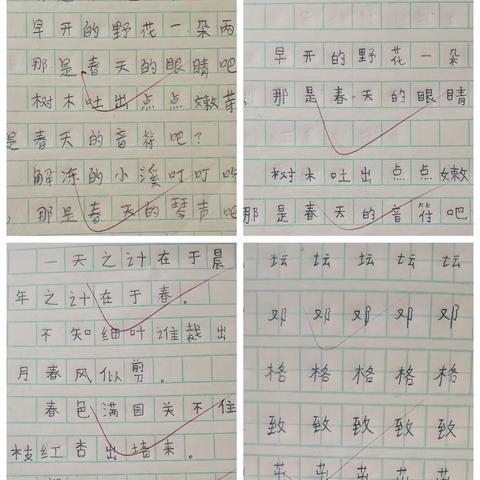 早开的野花一朵两
那是春天的眼睛吧
树木吐出点点嫩芽
是春天的音符吧?
解冻的小溪叮叮咚
那是春天的琴声吧
早开的野花一朵
那是春天的眼睛
树木吐出点点嫩
那是春天的音符吧
一天之计在于晨
年之计在于春。
不知细叶谁裁出
月春风似剪。
春色满园关不住
枝红杏出墙来。
坛坛坛坛坛
邓邓邓邓邓
格格格格格
致致致致致